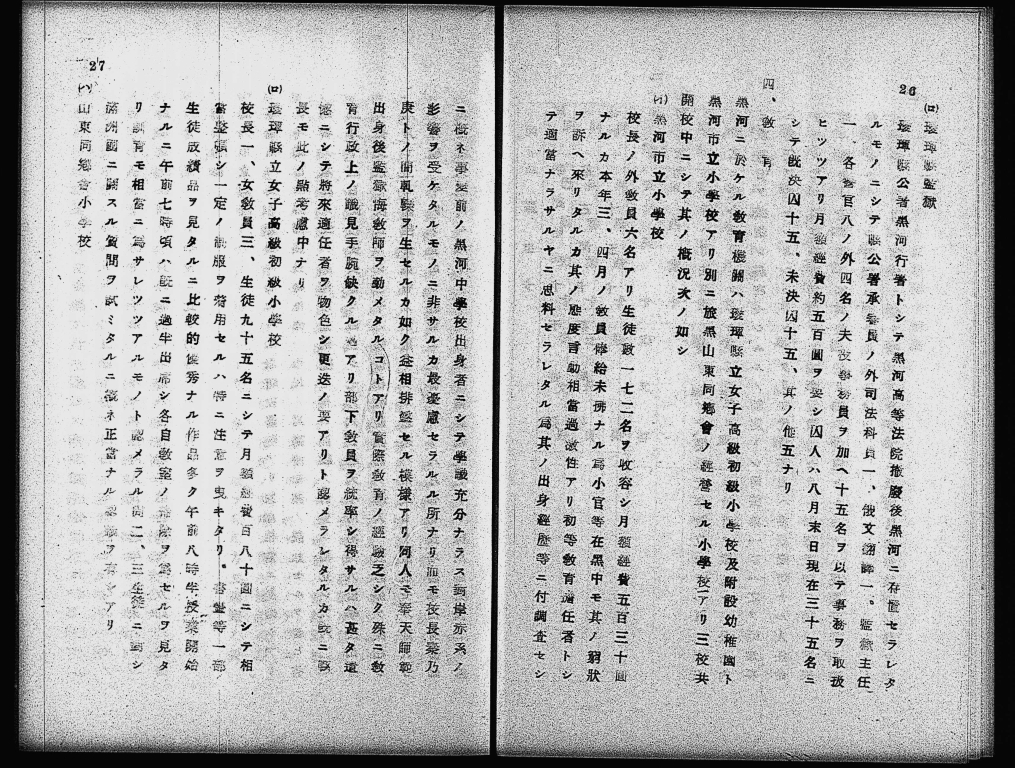 26
(ロ) 璦琿縣監獄
璦琿縣公署黑河行署トシテ黑河高等法院撤廢後黑河ニ存置セラレタ
ルモノニシテ縣公署承審員ノ外司法科員一、俄文繙譯一。監獄主任
一、各看官八ノ外四名ノ夫役事務員ヲ加ヘ十五名ヲ以テ事務ヲ取扱
ヒツツアリ月額經費約五百圓ヲ要シ囚人ハ八月末日現在三十五名ニ
シテ既決囚十五、未決囚十五、其ノ他五ナリ
四、敎育
黑河ニ於ケル敎育機關ハ璦琿縣立女子高級初級小學校及附設幼稚園ト
黑河市立小學校アリ別ニ旅黑山東同鄕會ノ經營セル小學校アリ三校共
開校中ニシテ其ノ概況次ノ如シ
(イ) 黑河市立小學校
校長ノ外敎員六名アリ生徒數一七二名ヲ收容シ月額經費五百三十圓
ナルカ本年三、四月ノ敎員俸給未拂ナル爲小官等在黑中モ其ノ窮狀
ヲ訴ヘ來リタルカ其ノ態度言動相當過激性アリ初等敎育適任者トシ
テ適當ナラサルヤニ思料セラレタル爲其ノ出身經歷等ニ付調査セシ
27
ニ概ネ事變前ノ黑河中學校出身者ニシテ學識充分ナラス兩岸赤系ノ
影響ヲ受ケタルモノニ非サルカ最憂慮セラルル所ナリ而モ校長梁乃
庚トノ間軋轢ヲ生セルカ如ク益相排擠セル模樣アリ同人モ奉天師範
出身後監獄海敎師ヲ勤メタルコトアリ實際敎育ノ經驗乏シク殊ニ敎
育行政上ノ識見手腕缺クル處アリ部下敎員ヲ統率シ得サルハ甚タ遺
憾ニシテ將來適任者ヲ物色シ更迭ノ要アリト認メラレタルカ既ニ縣
長モ此ノ點考慮中ナリ
(ロ) 璦琿縣立女子高級初級小學校
校長一、女敎員三、生徒九十五名ニシテ月額經費百八十圓ニシテ相
當緊張シ一定ノ制服ヲ着用セルハ特ニ注意ヲ曳キタリ。書畫等一部
生徒成績品ヲ見タルニ比較的優秀ナル作品多ク午前八時半授業開始
ナルニ午前七時頃ハ既ニ過半出席シ各自敎室ノ掃除ヲ爲セルヲ見タ
リ訓育モ相當ニ爲サレツツアルモノト認メラル尚二、三生徒ニ對シ
滿洲國ニ關スル質問ヲ試ミタルニ概ネ正當ナル認識ヲ有シアリ
(ハ) 山東同鄕會小學校